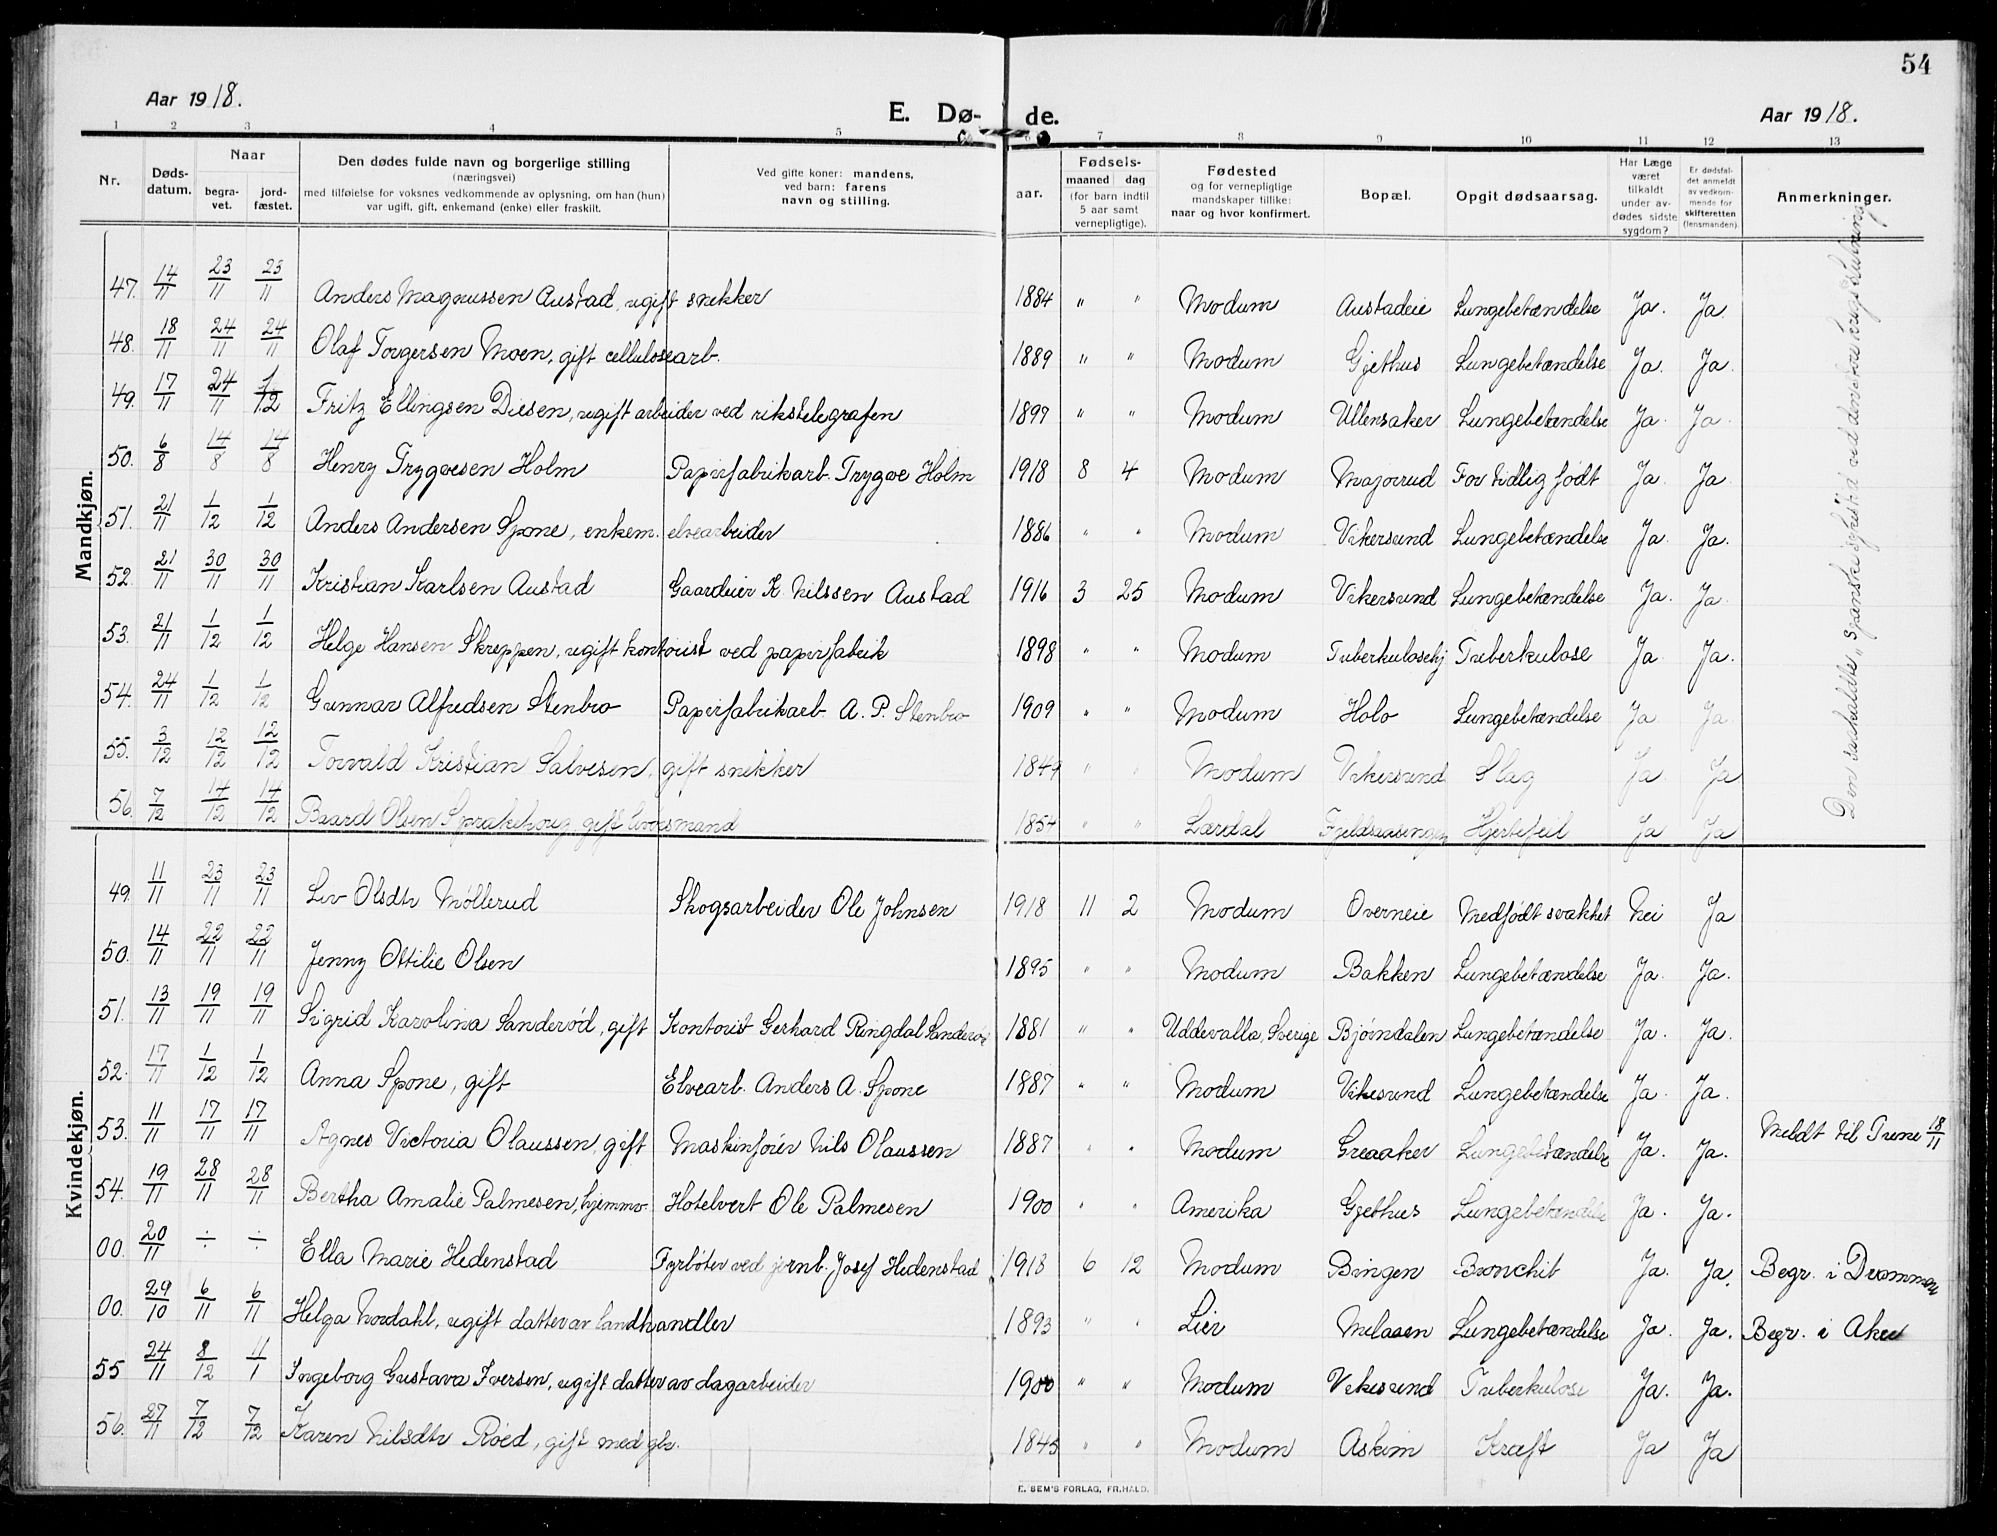 54
Aar 1918. E. Dø- de. Aar 1918.
1 2 3 4 5 6 7 8 9 10 11 12 13
Nr. Døds-datum. Naar begra-vet. jord-fæstet. Den dødes fulde navn og borgerlige stilling (næringsvei) med tilføielse for voksnes vedkommende av oplysning, om han (hun) var ugift, gift, enkemand (enke) eller fraskilt. Ved gifte koner: mandens, ved barn: farens navn og stilling. aar. Fødsels- maaned dag (for barn indtil 5 aar samt vernepligtige). Fødested og for vernepligtige mandskaper tillike: naar og hvor konfirmert. Bopæl. Opgit dødsaarsag. Har Læge været tilkaldt under av-dødes sidste sygdom? Er dødsfal-det anmeldt av vedkom-mende for skifteretten (lensmanden) Anmerkninger.
Mandkjøn.
47. 14/11 23/11 23/11 Anders Magnussen Austad, ugift snekker 1884 " " Modum Austadeie Lungebetændelse Ja. Ja.
48. 18/11 24/11 24/11 Olaf Torgersen Moen, gift cellulosearb. 1889 " " Modum Gjethus Lungebetændelse Ja. Ja.
49. 17/11 24/11 1/12 Fritz Ellingsen Diesen, ugift arbeider ved rikstelegrafen 1897 " " Modum Ullensaker Lungebetændelse Ja. Ja.
50. 6/8 14/8 14/8 Henry Trygvesen Holm Papirfabrikarb. Trygve Holm 1918 8 4 Modum Majorrud For tidlig født Ja. Ja.
51. 21/11 1/12 1/12 Anders Andersen Spone, enkem. elvearbeider 1886 " " Modum Vikersund Lungebetændelse Ja. Ja.
52. 21/11 30/11 30/11 Kristian Karlsen Austad Gaardeier K. Nilssen Austad 1916 3 25 Modum Vikersund Lungebetændelse Ja. Ja.
53. 21/11 1/12 1/12 Helge Hansen Skreppen, ugift kontorist ved papirfabrik 1898 " " Modum Tuberkulosehj Tuberkulose Ja Ja.
54. 24/11 1/12 1/12 Gunnar Alfredsen Stenbro Papirfabrikarb. A. P. Stenbro 1909 " " Modum Holo Lungebetændelse Ja Ja.
55. 3/12 12/12 12/12 Torvald Kristian Salvesen, gift snekker 1849 " " Modum Vikersund Slag Ja Ja
56. 7/12 14/12 14/12 Baard Olsen gift 1854 " " Lærdal Hjertefeil Ja Ja
Den saakaldte "spanske syke"
Kvindekjøn.
49. 11/11 23/11 23/11 Liv Olsdtr Møllerud Skogsarbeider Ole Johnsen 1918 11 2 Modum Overneie Medfødt svakhet Nei Ja
50. 14/11 22/11 22/11 Jenny Ottilie Olsen 1895 " " Modum Bakken Lungebetændelse Ja. Ja.
51. 13/11 19/11 19/11 Sigrid Karolina Sanderød, gift Kontorist Gerhard Ringdal Sanderød 1881 " " Uddevalla, Sverige Bjørndalen Lungebetændelse Ja. Ja.
52. 17/11 1/12 1/12 Anna Spone, gift Elvearb. Anders A. Spone 1887 " " Modum Vikesund Lungebetændelse Ja. Ja.
53. 11/11 17/11 17/11 Agnes Victoria Olaussen, gift Maskinfører Nils Olaussen 1887 " " Modum Greaaker Lungebetændelse Ja. Ja. Meldt til Tune 18/11
54. 19/11 28/11 28/11 Bertha Amalie Palmesen, hjemmv. Hotelvert Ole Palmesen 1900 " " Amerika Gjethus Lungebetændelse Ja. Ja.
00. 20/11 ÷ ÷ Ella Marie Hedenstad Fyrbøter ved jernb. Josef Hedenstad 1918 6 12 Modum Bingen Bronchit Ja. Ja. Begr. i Drammen
00. 29/10 6/11 6/11 Helga Nordahl, ugift datter av landhandler 1893 " " Lier Melaaen Lungebetændelse Ja. Ja. Begr. i Aker
55 24/11 8/12 11/1 Ingeborg Gustava Iversen, ugift datter av dagarbeider 1900 " " Modum Vikesund Tuberkulose Ja. Ja.
56. 27/11 7/12 7/12 Karen Nilsdtr Röed, gift med gbr. 1845 " " Modum Askim Kræft Ja Ja
E. SEM'S FORLAG, FR.HALD.